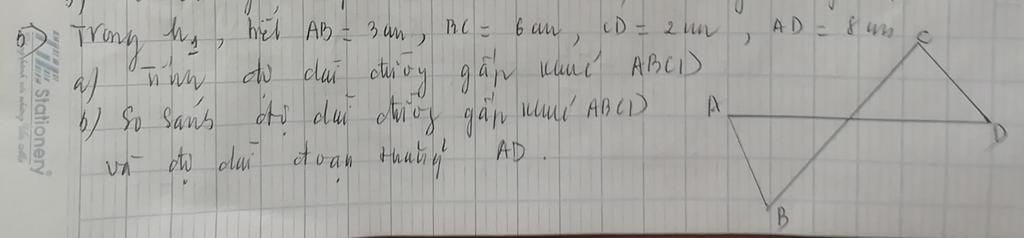 5) Trong h1, biết AB = 3 cm, BC = 6 cm, CD = 2 cm, AD = 8 cm
a) Tính độ dài đường gấp khúc ABCD
b) So sánh độ dài đường gấp khúc ABCD
và độ dài đoạn thẳng AD.
C
A
D
B
Stationery